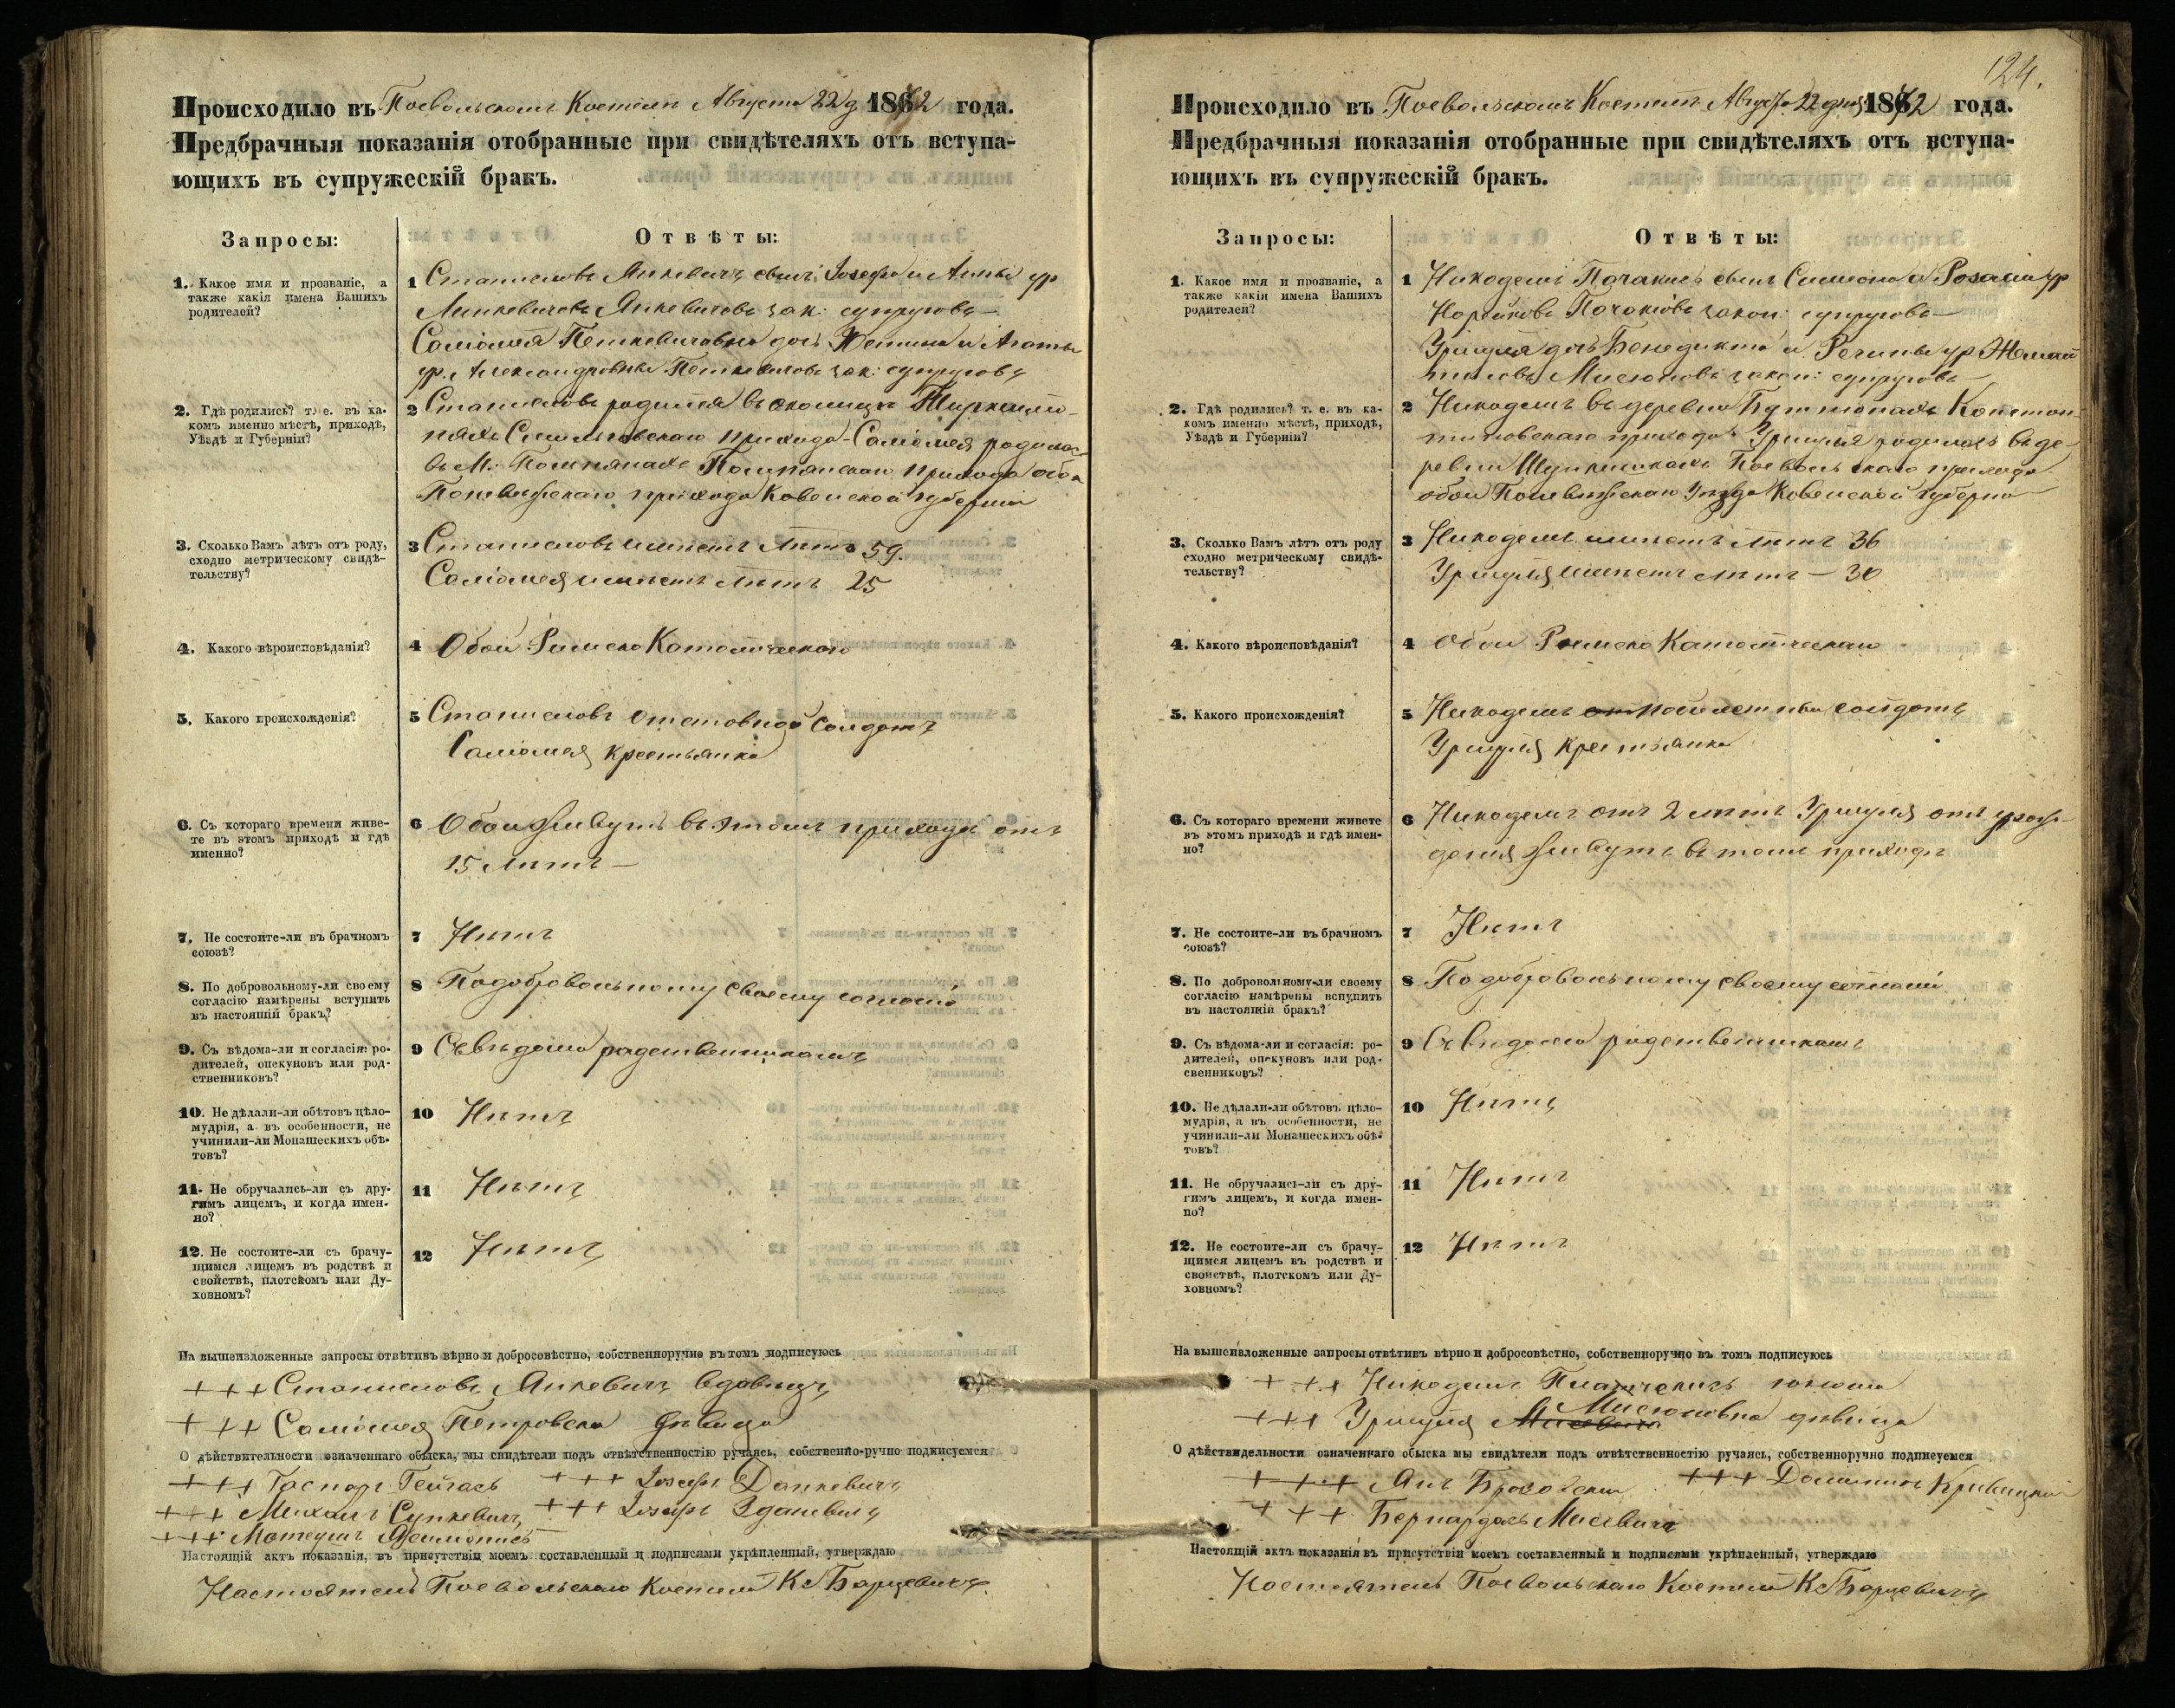 Происходило въ Поевольскомъ Костелѣ Августа 22 д 1872 года.
Предбрачныя показанія отобранные при свидѣтеляхъ отъ вступа-
ющихъ въ супружескій бракъ.
Запросы:
Отвѣты:
1. Какое имя и прозваніе, а
также какія имена Вашихъ
родителей?
1 Станиславъ Янкевичъ сынъ Іозефа и Анны ур
Янкевичовъ зак: супруговъ
Саліомея Петкевичовна дочь и Агаты
ур. Александровны Петкевичовъ зак: супруговъ
2. Гдѣ родились? т. е. въ ка-
комъ именно мѣстѣ, приходѣ,
Уѣздѣ и Губерніи?
2 Станиславъ родился въ околицѣ
прихода Саліомея родилась
въ М. Помпянахъ Помпянскаго прихода оба
Поневѣжскаго прихода Ковенской губерніи
3. Сколько Вамъ лѣтъ отъ роду,
сходно метрическому свидѣ-
тельству?
3 Станиславъ имѣетъ лѣтъ 59.
Саліомея имѣетъ лѣтъ 25
4. Какого вѣроисповѣданія?
4 Обои Римско Католическаго
5. Какого происхожденія?
5 Станиславъ отставной солдатъ
Саліомея крестьянка
6. Съ котораго времени живе-
те въ этомъ приходѣ и гдѣ
именно?
6 Обои живутъ въ этомъ приходѣ отъ
15 лѣтъ
7. Не состоите-ли въ брачномъ
союзѣ?
7 Нѣтъ
8. По добровольному-ли своему
согласію намѣрены вступить
въ настоящій бракъ?
8 По добровольному своему согласію
9. Съ вѣдома-ли и согласія: ро-
дителей, опекуновъ или род-
ственниковъ?
9 Съ вѣдома родственникамъ
10. Не дѣлали-ли обѣтовъ цѣло-
мудрія, а въ особенности, не
учинили-ли Монашескихъ обѣ-
товъ?
10 Нѣтъ
11. Не обручались-ли съ дру-
гимъ лицемъ, и когда имен-
но?
11 Нѣтъ
12. Не состоите-ли съ брачу-
щимся лицемъ въ родствѣ и
свойствѣ, плотскомъ или Ду-
ховномъ?
12 Нѣтъ
На вышеизложенные запросы отвѣтивъ вѣрно и добросовѣстно, собственноручно въ томъ подписуюсь
+++ Станиславъ Янкевичъ вдовецъ
+++ Саліомея Петровска дѣвица
О дѣйствительности означеннаго обыска, мы свидѣтели подъ отвѣтственностію ручаясь, собственно-ручно подписуемся
+++ Гаспоръ +++ Іозефъ Данкевичъ
+++ Михаилъ Сункевичъ +++ Іозефъ Здановичъ
+++ Матеушъ
Настоящій актъ показанія, въ присутствіи моемъ составленный и подписями укрѣпленный, утверждаю
Настоятель Поевольскаго Костела К Барцевичъ
124.
Происходило въ Поевольскомъ Костелѣ Август. 22 дня 1872 года.
Предбрачныя показанія отобранные при свидѣтеляхъ отъ вступа-
ющихъ въ супружескій бракъ.
Запросы:
Отвѣты:
1. Какое имя и прозваніе, а
также какія имена Вашихъ
родителей?
1 Никодемъ сынъ Симона и Розаліи ур
закон: супруговъ
Уршуля дочь Бенедикта и Регины ур.
Мисюновъ закон: супруговъ
2. Гдѣ родились? т. е. въ ка-
комъ именно мѣстѣ, приходѣ,
Уѣздѣ и Губерніи?
2 Никодемъ въ деревнѣ Констан-
тиновскаго прихода Уршуля родилась въ де-
ревни Поевольскаго прихода
обои Поневѣжскаго Уѣзда Ковенской губерніи
3. Сколько Вамъ лѣтъ отъ роду
сходно метрическому свидѣ-
тельству?
3 Никодемъ имѣетъ лѣтъ 36
Уршуля имѣетъ лѣтъ — 30
4. Какого вѣроисповѣданія?
4 Обои Римско Католическаго
5. Какого происхожденія?
5 Никодемъ солдатъ
Уршуля крестьянка
6. Съ котораго времени живете
въ этомъ приходѣ и гдѣ имен-
но?
6 Никодемъ отъ 2 лѣтъ Уршуля отъ урож-
денія живутъ въ томъ приходѣ
7. Не состоите-ли въ брачномъ
союзѣ?
7 Нѣтъ
8. По добровольному-ли своему
согласію намѣрены вспупить
въ настоящій бракъ?
8 По добровольному своему согласіи
9. Съ вѣдома-ли и согласія: ро-
дителей, опекуновъ или род-
свенниковъ?
9 Съ вѣдома родственникамъ
10. Не дѣлали-ли обѣтовъ цѣло-
мудрія, а въ особенности, не
учинили-ли Монашескихъ обѣ-
товъ?
10 Нѣтъ
11. Не обручались-ли съ дру-
гимъ лицемъ, и когда имен-
но?
11 Нѣтъ
12. Не состоите-ли съ брачу-
щимся лицемъ въ родствѣ и
свойствѣ, плотскомъ или Ду-
ховномъ?
12 Нѣтъ
На вышеизложенные запросы отвѣтивъ вѣрно и добросовѣстно, собственноручно въ томъ подписуюсь
+++ Никодемъ юноша
+++ Уршуля Мисюновна дѣвица
О дѣйствидельности означеннаго обыска мы свидѣтели подъ отвѣтственностію ручаясь, собственноручно подписуемся
+++ Янъ +++ Доминикъ Кривицкій
+++ Бернардъ Мисевичъ
Настоящій актъ показанія въ присутствіи моемъ составленный и подписями укрѣпленный, утверждаю
Настоятель Поевольскаго Костела К Барцевичъ